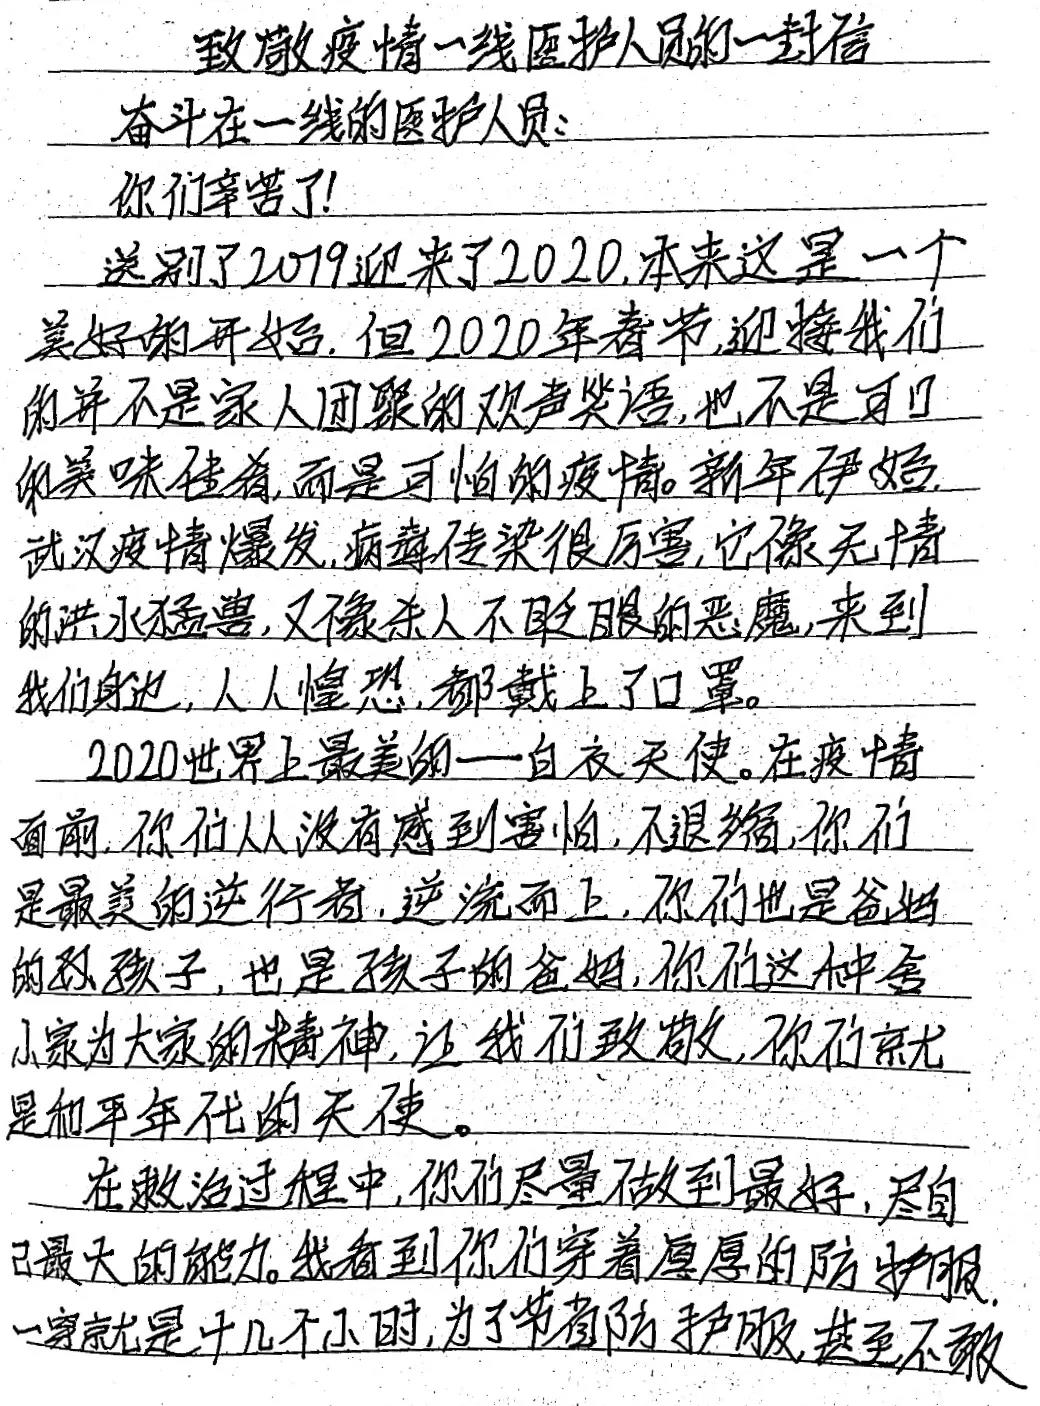 致敬疫情一线医护人员的一封信
奋斗在一线的医护人员:
你们辛苦了!
送别了2019迎来了2020,本来这是一个
美好的开始,但2020年春节,迎接我们
的并不是家人团聚的欢声笑语,也不是可口
的美味佳肴,而是可怕的疫情。新年伊始,
武汉疫情爆发,病毒传染很厉害,它像无情
的洪水猛兽,又像杀人不眨眼的恶魔,来到
我们身边,人人惶恐,都戴上了口罩。
2020世界上最美的——白衣天使。在疫情
面前,你们从没有感到害怕,不退缩,你们
是最美的逆行者,逆流而上,你们也是爸妈
的孩子,也是孩子的爸妈,你们这种舍
小家为大家的精神,让我们致敬,你们就
是和平年代的天使。
在救治过程中,你们尽量做到最好,尽自
己最大的能力。我看到你们穿着厚厚的防护服,
一穿就是十几个小时,为了节省防护服,甚至不敢